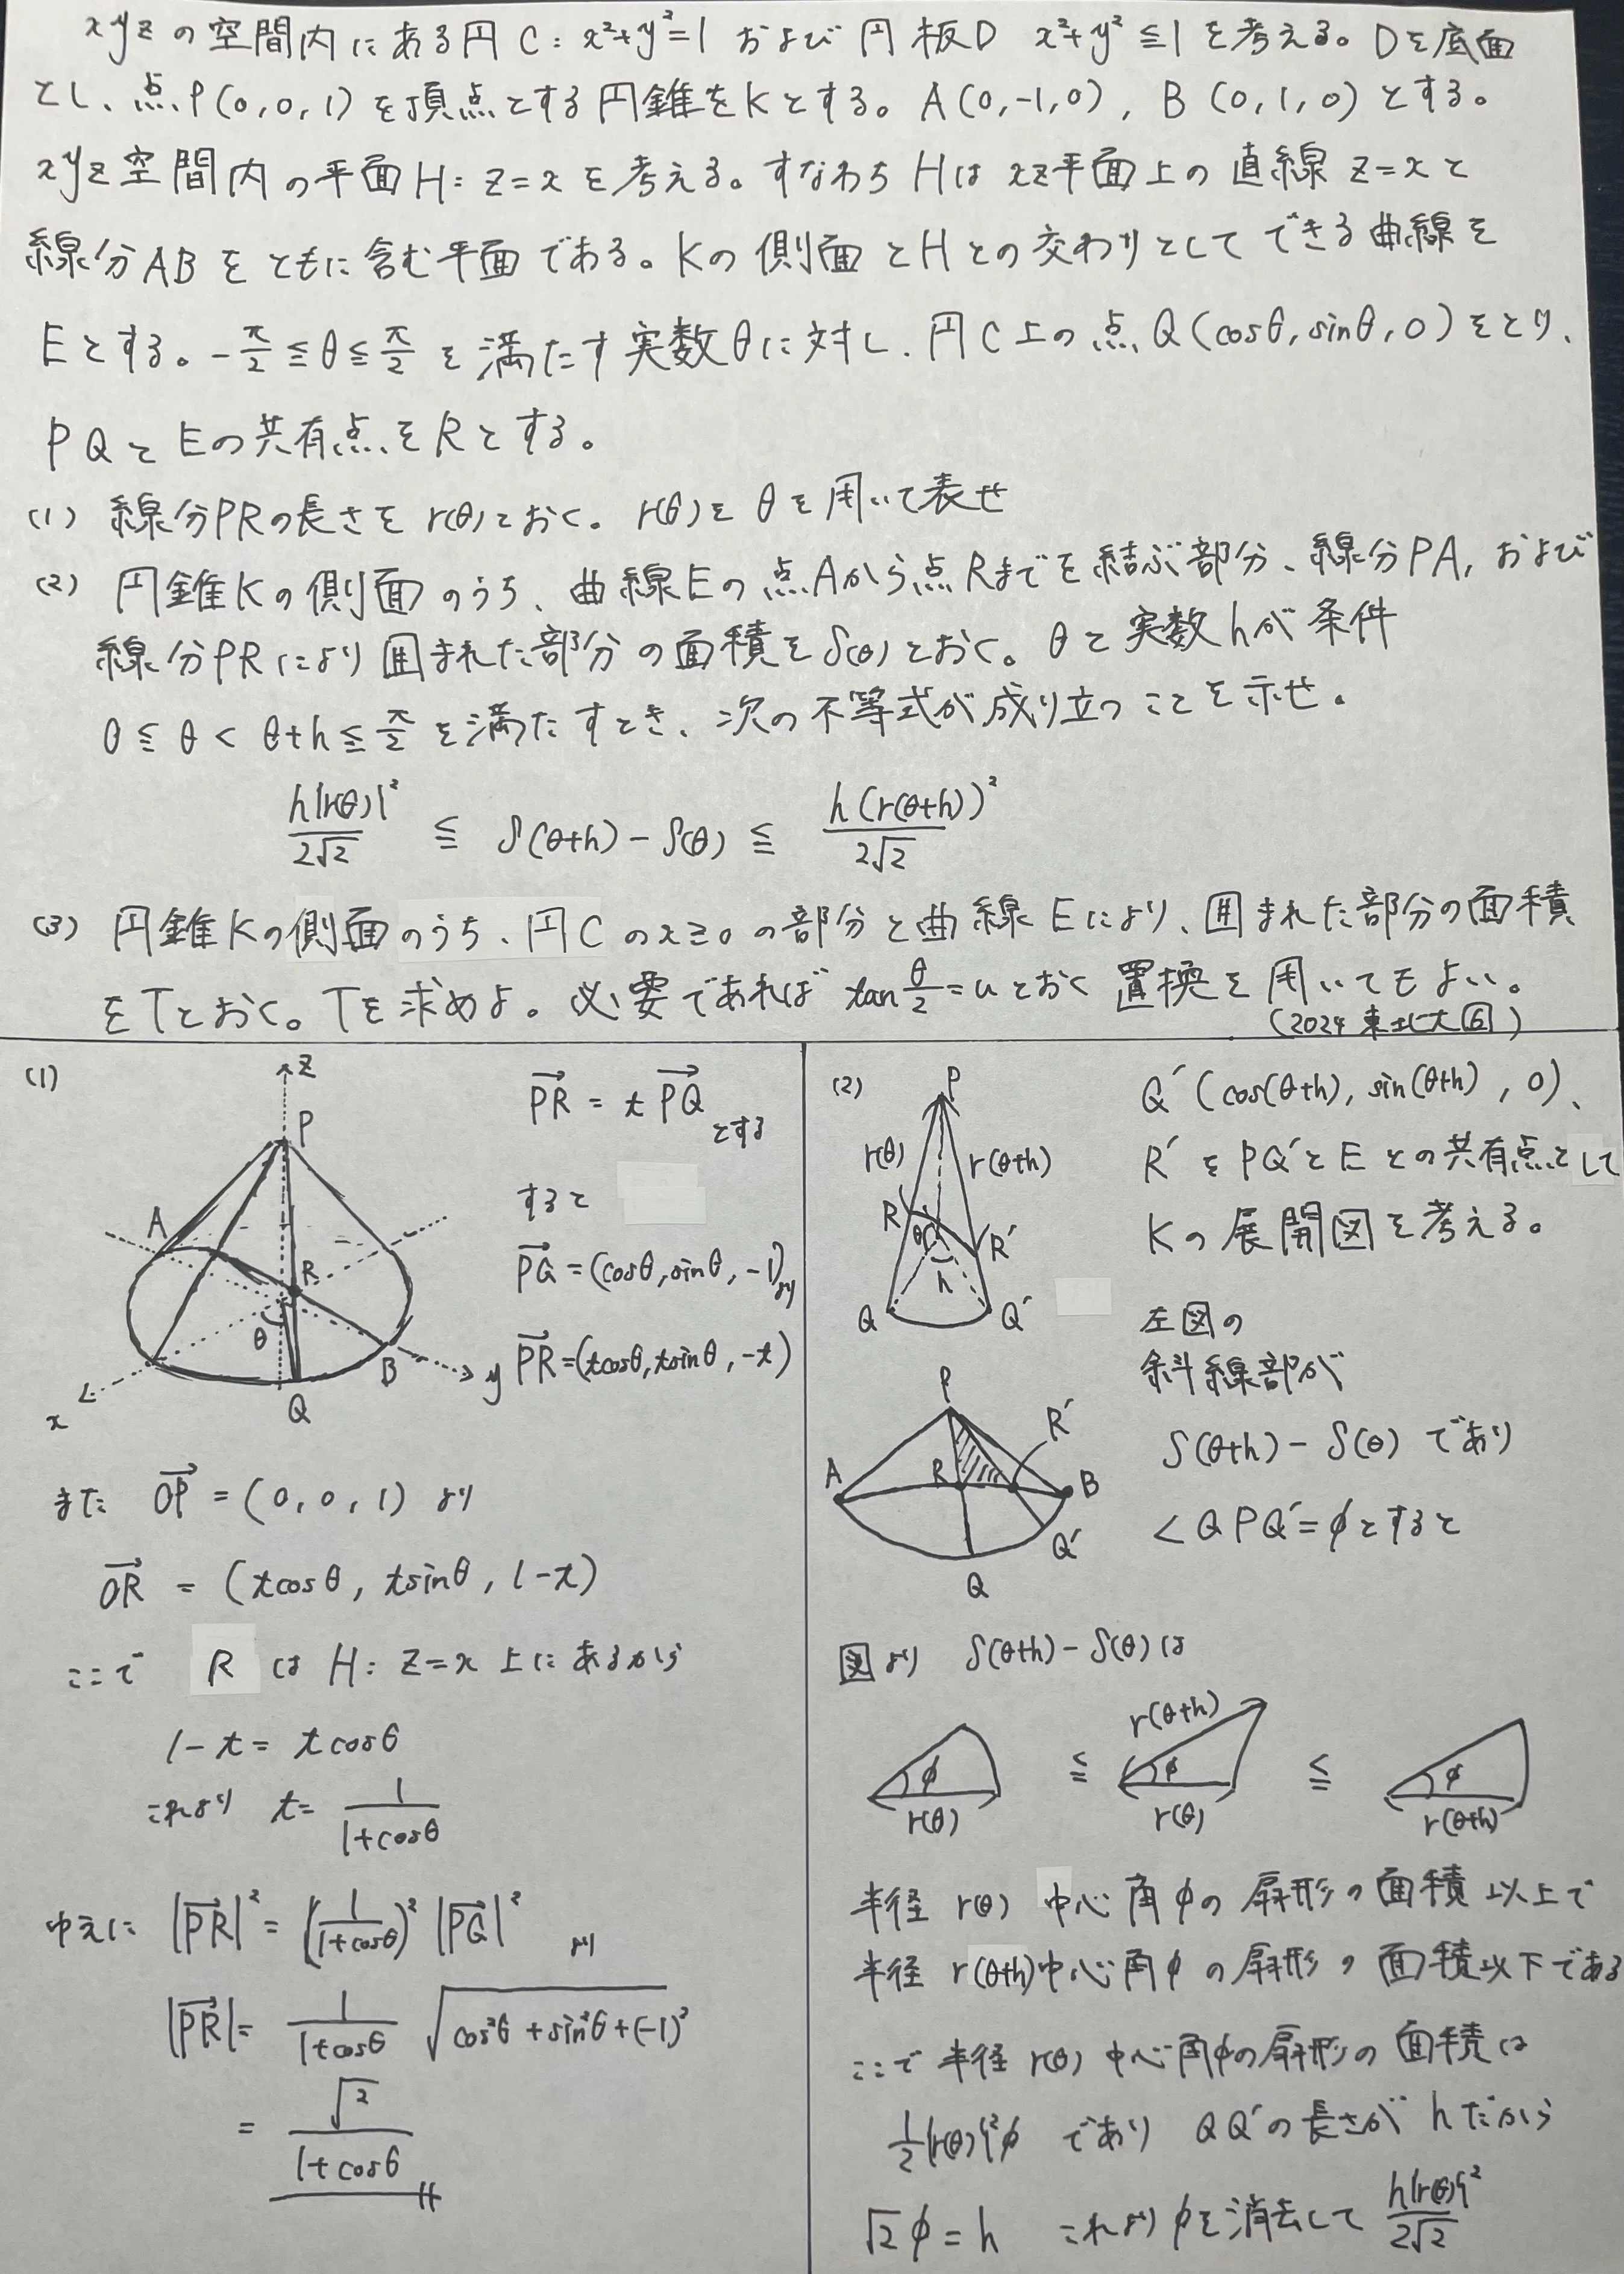 xyzの空間内にある円C:x²+y²=1 および円板D x²+y²≦1を考える。Dを底面
とし、点P(0,0,1)を頂点とする円錐をKとする。A(0,-1,0), B(0,1,0)とする。
xyz空間内の平面H:z=xを考える。すなわちHはxz平面上の直線z=xと
線分ABをともに含む平面である。Kの側面とHとの交わりとしてできる曲線を
Eとする。-π/2≦θ≦π/2を満たす実数θに対し、円C上の点Q(cosθ,sinθ,0)をとり、
PQとEの共有点をRとする。
(1) 線分PRの長さをr(θ)とおく。r(θ)をθを用いて表せ
(2) 円錐Kの側面のうち、曲線Eの点Aから点Rまでを結ぶ部分、線分PA,および
線分PRにより囲まれた部分の面積をS(θ)とおく。θと実数hが条件
0≦θ<θ+h≦π/2を満たすとき、次の不等式が成り立つことを示せ。
h{r(θ)}²/2√2 ≦ S(θ+h)-S(θ) ≦ h(r(θ+h))²/2√2
(3) 円錐Kの側面のうち、円Cのx≧0の部分と曲線Eにより、囲まれた部分の面積
をTとおく。Tを求めよ。必要であれば tan θ/2=uとおく置換を用いてもよい。
(2024 東北大 6)
(1)
z
P
A
R
θ
B
x
Q
y
PR = tPQ
とする
すると
PQ=(cosθ,sinθ,-1)より
PR=(tcosθ,tsinθ,-t)
また OP=(0,0,1)より
OR = (tcosθ, tsinθ, 1-t)
ここで RはH: z=x上にあるから
1-t= tcosθ
これより t= 1/1+cosθ
ゆえに |PR|²=(1/1+cosθ)²|PQ|² より
|PR|= 1/1+cosθ √cos²θ+sin²θ+(-1)²
= √2/1+cosθ
(2)
P
r(θ)
r(θ+h)
R
R'
θ
h
Q
Q'
Q'(cos(θ+h), sin(θ+h), 0)、
R'をPQ'とEとの共有点として
Kの展開図を考える。
P
R'
A
R
B
Q'
Q
左図の
斜線部が
S(θ+h)-S(θ)であり
∠QPQ'=φとすると
図より S(θ+h)-S(θ)は
φ
r(θ)
≦
r(θ+h)
φ
r(θ)
≦
φ
r(θ+h)
半径 r(θ) 中心角φの扇形の面積以上で
半径 r(θ+h)中心角φの扇形の面積以下である
ここで半径r(θ)中心角φの扇形の面積は
1/2{r(θ)}²φ であり QQ'の長さがhだから
√2φ=h これよりφを消去して h{r(θ)}²/2√2